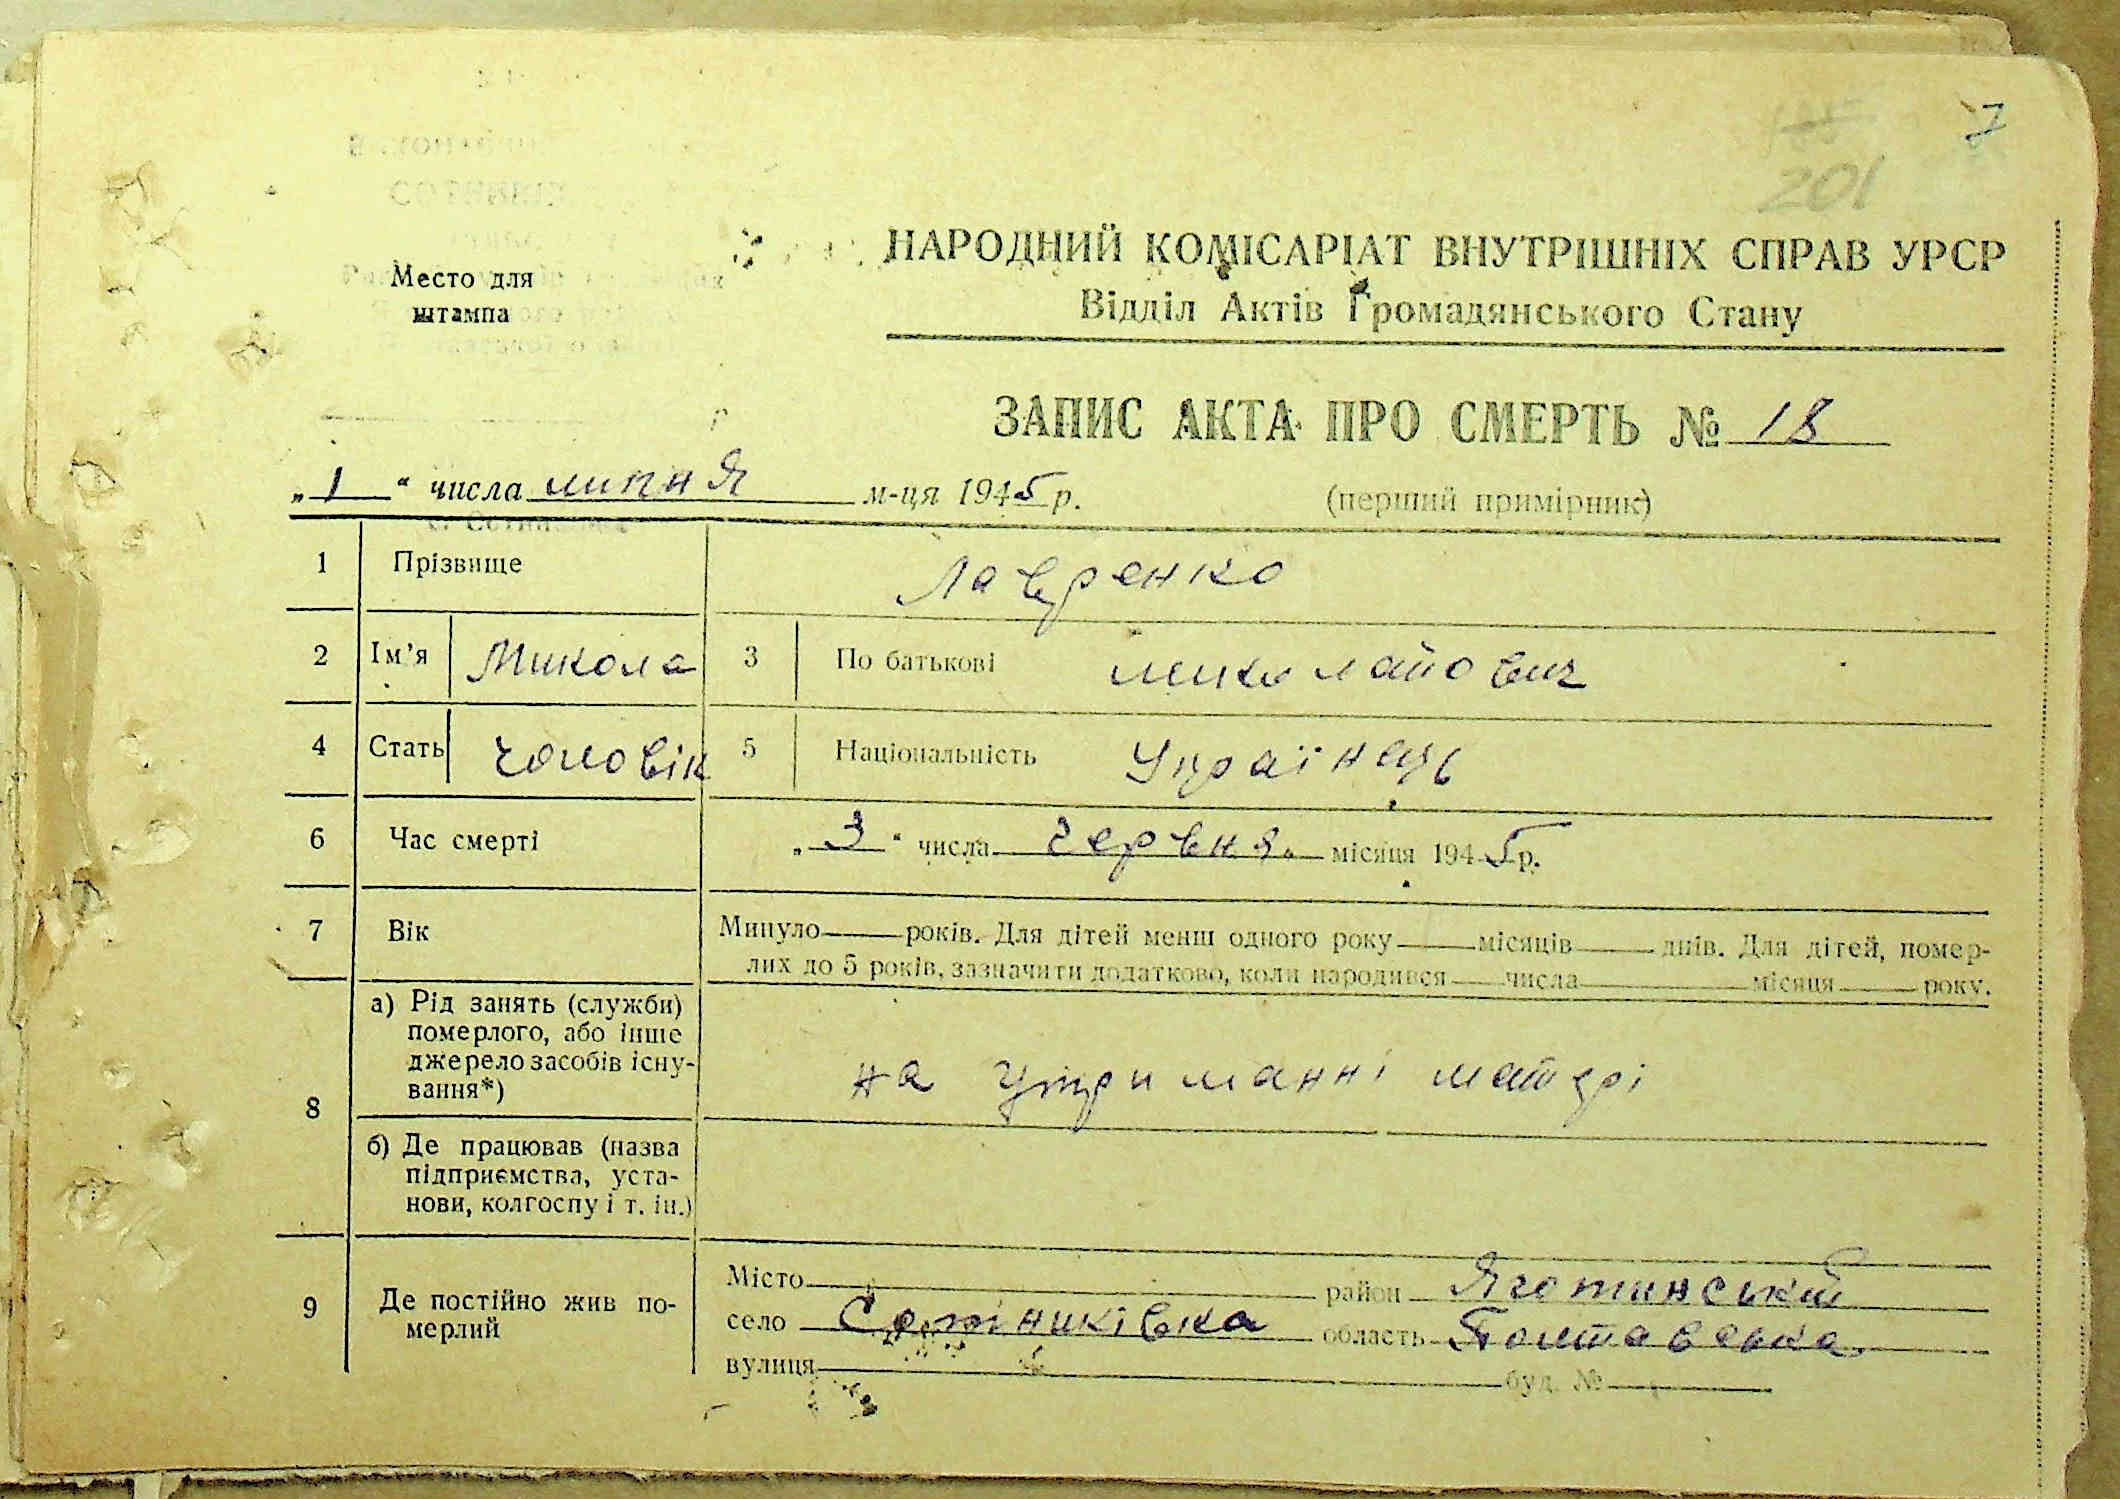 7
201
НАРОДНИЙ КОМІСАРІАТ ВНУТРІШНІХ СПРАВ УРСР
Место для
штампа
Відділ Актів Громадянського Стану
ЗАПИС АКТА ПРО СМЕРТЬ № 18
„1“ числа липня м-ця 1945 р.
(перший примірник)
1 Прізвище Лавренко
2 Ім’я Микола 3 По батькові миколайович
4 Стать чоловік 5 Національність Українець
6 Час смерті „3“ числа червня. місяця 1945 р.
7 Вік Минуло років. Для дітей менш одного року місяців днів. Для дітей, помер-
лих до 5 років, зазначити додатково, коли народився числа місяця року.
8 а) Рід занять (служби)
померлого, або інше
джерело засобів існу-
вання*)
на утриманні матері
б) Де працював (назва
підприємства, уста-
нови, колгоспу і т. ін.)
9 Де постійно жив по-
мерлий
Місто район Яготинський
село Сотниківка область Полтавська
вулиця буд. №